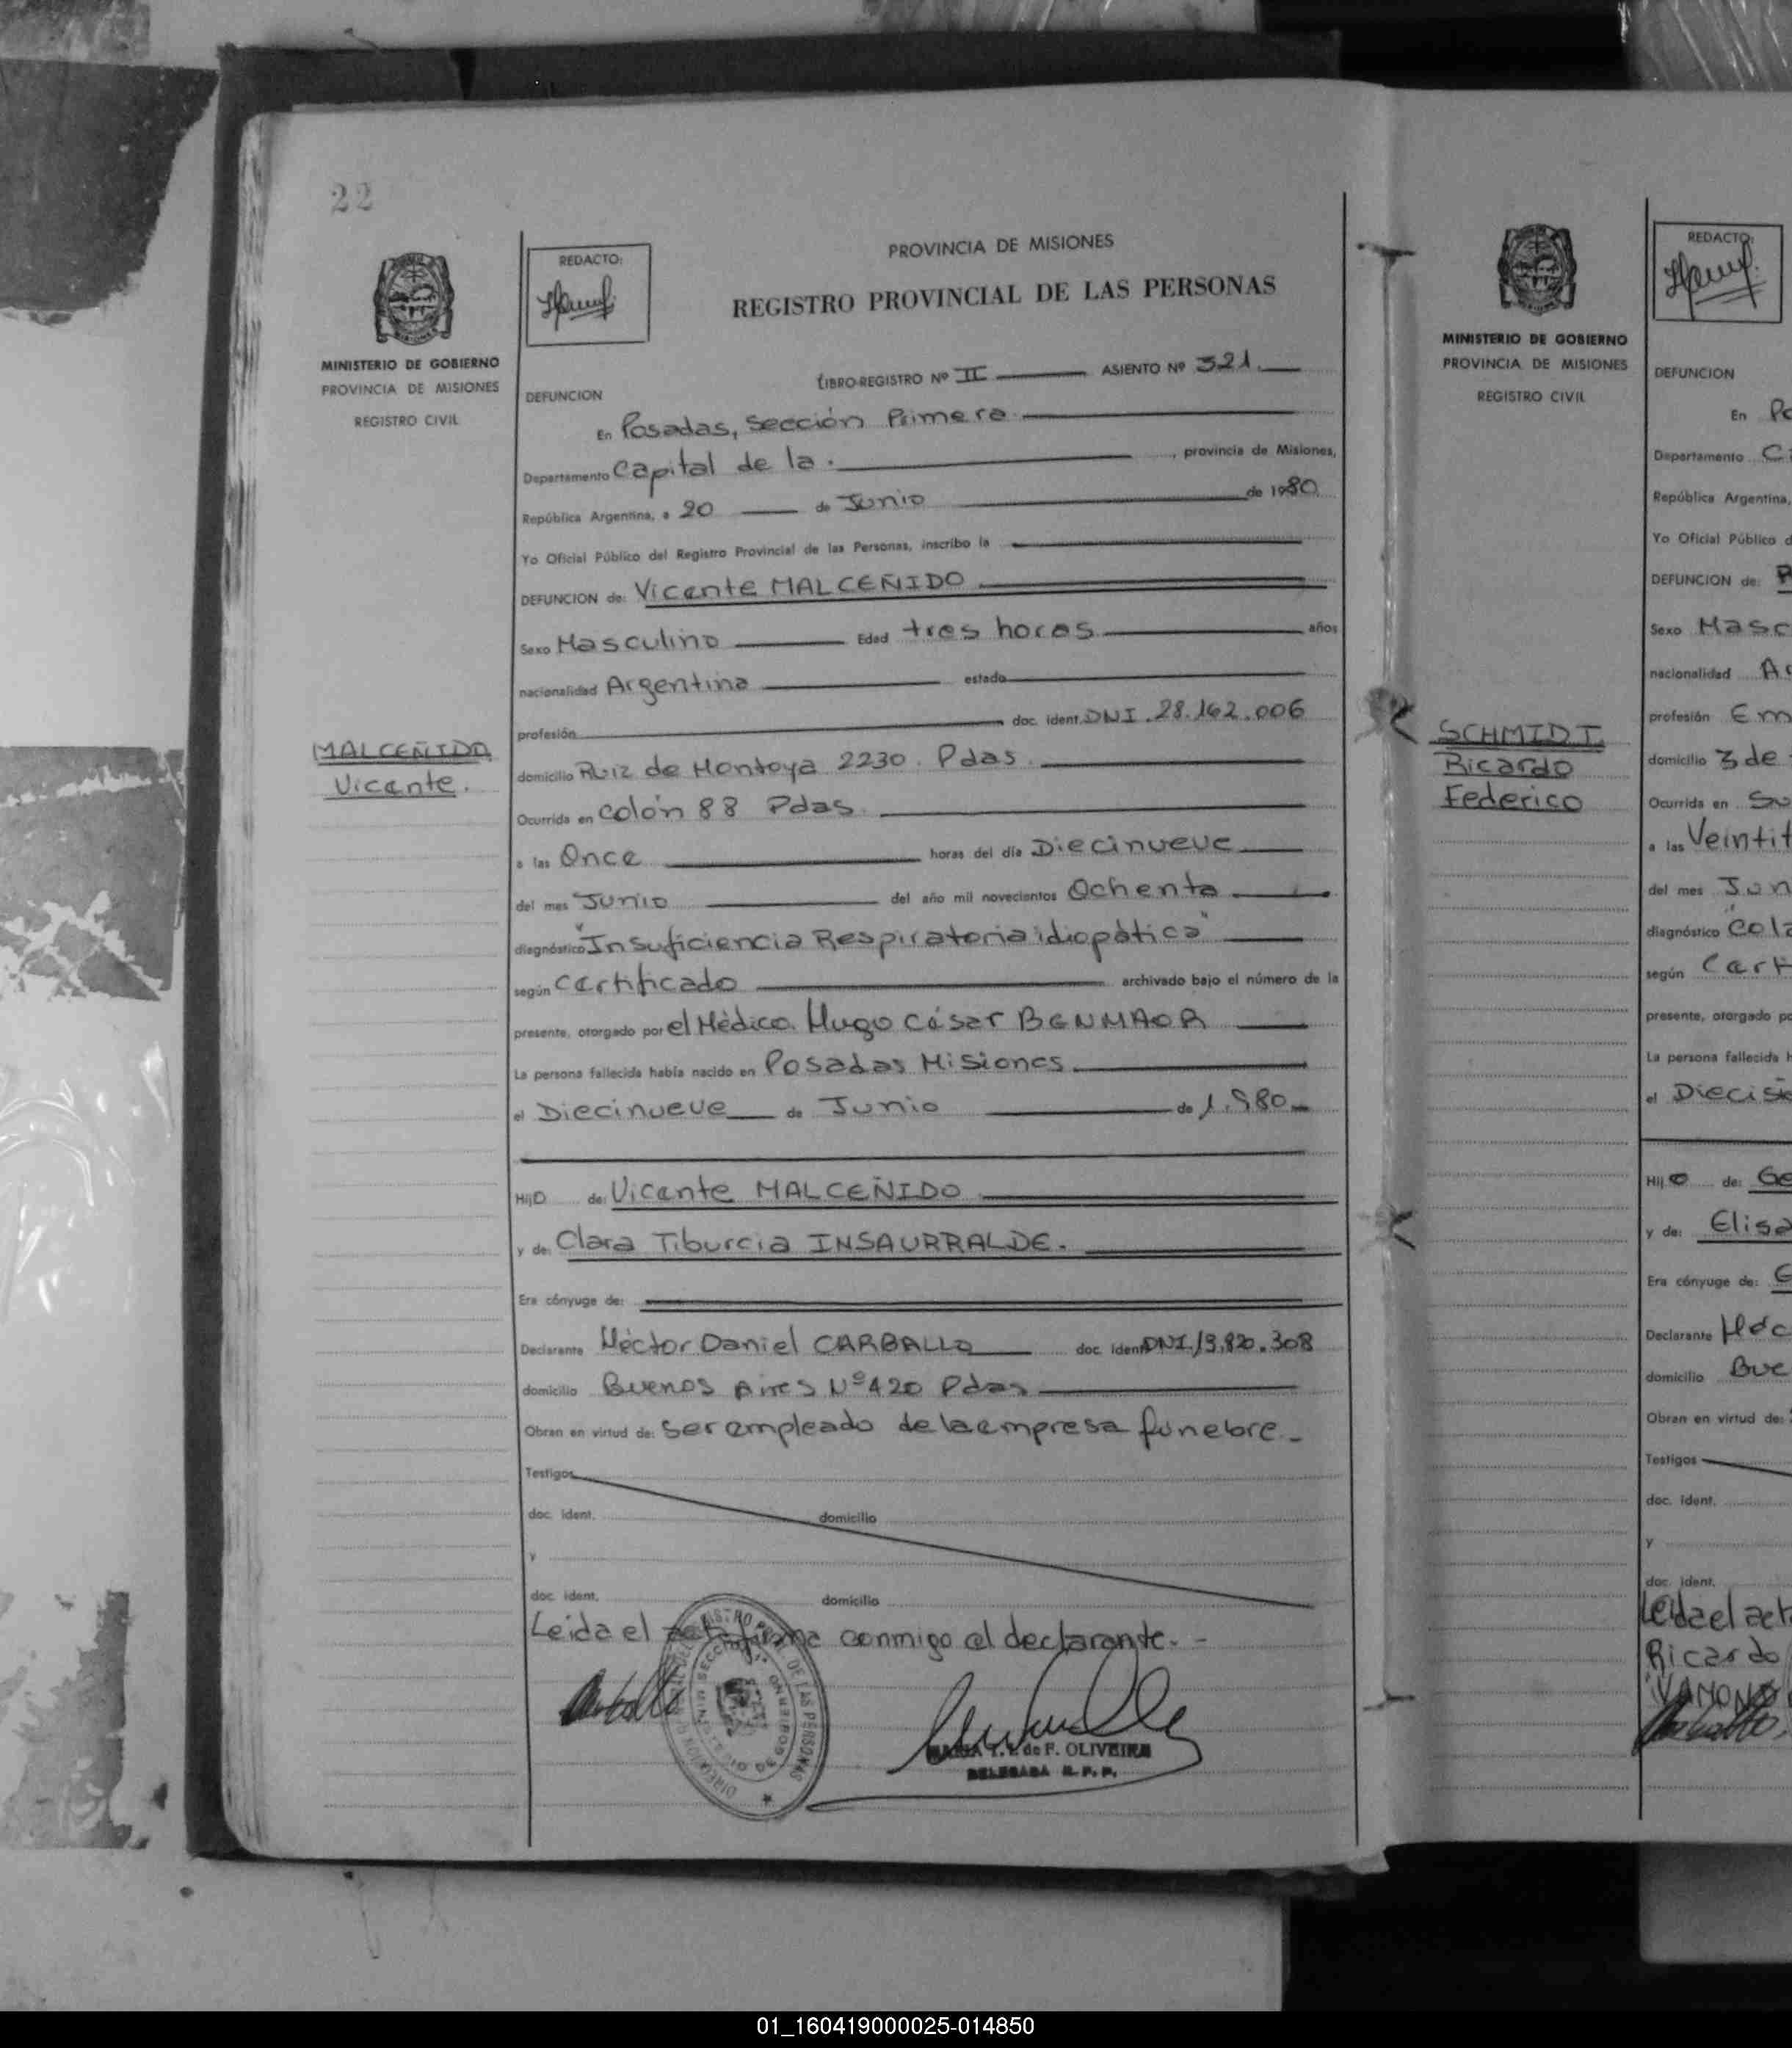 22
MINISTERIO DE GOBIERNO
PROVINCIA DE MISIONES
REGISTRO CIVIL
MALCEÑIDO
Vicente.
REDACTO:
PROVINCIA DE MISIONES
REGISTRO PROVINCIAL DE LAS PERSONAS
LIBRO-REGISTRO Nº II ASIENTO Nº 321.
DEFUNCION
En Posadas, Sección Primera
Departamento Capital de la. , provincia de Misiones,
República Argentina, a 20 de Junio de 1980
Yo Oficial Público del Registro Provincial de las Personas, inscribo la
DEFUNCION de: Vicente MALCEÑIDO
Sexo Masculino Edad tres horas años
nacionalidad Argentina estado
profesión doc. ident. DNI. 28.162.006
domicilio Ruiz de Montoya 2230. Pdas.
Ocurrida en Colón 88 Pdas.
a las Once horas del día Diecinueve
del mes Junio del año mil novecientos Ochenta
diagnóstico "Insuficiencia Respiratoria idiopática"
según Certificado archivado bajo el número de la
presente, otorgado por el Médico. Hugo César BENMAOR
La persona fallecida había nacido en Posadas Misiones
el Diecinueve de Junio de 1.980
Hijo de: Vicente MALCEÑIDO
y de: Clara Tiburcia INSAURRALDE.
Era cónyuge de:
Declarante Héctor Daniel CARBALLO doc. ident DNI.13.820.308
domicilio Buenos Aires Nº 420 Pdas
Obran en virtud de: ser empleado de la empresa fúnebre.
Testigos
doc. ident. domicilio
y
doc. ident. domicilio
Leida el acta firma conmigo el declarante.
DE F. OLIVEIRA
DELEGADA R. P. P.
MINISTERIO DE GOBIERNO
PROVINCIA DE MISIONES
REGISTRO CIVIL
SCHMIDT
Ricardo
Federico
REDACTO:
DEFUNCION
En Po
Departamento C
República Argentina,
Yo Oficial Público d
DEFUNCION de: R
Sexo Masc
nacionalidad A
profesión Em
domicilio 3 de
Ocurrida en Su
a las Veintit
del mes Jun
diagnóstico "Cola
según Certi
presente, otorgado po
La persona fallecida h
el Diecisi
Hijo de: Ge
y de: Elisa
Era cónyuge de: E
Declarante Héc
domicilio Bue
Obran en virtud de:
Testigos
doc. ident.
y
doc. ident.
Leida el act
Ricardo
01_160419000025-014850